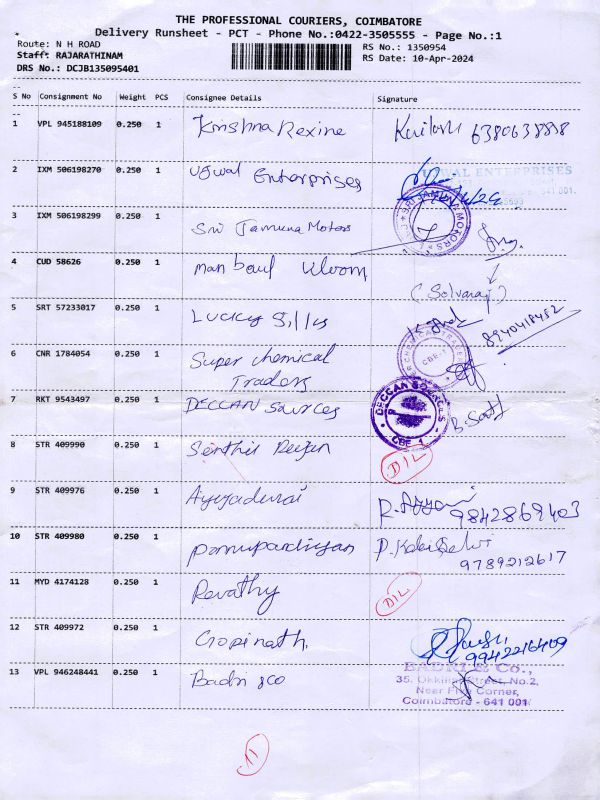 THE PROFESSIONAL COURIERS, COIMBATORE
Delivery Runsheet - PCT - Phone No.:0422-3505555 - Page No.:1
Route: N H ROAD RS No.: 1350954
Staff: RAJARATHINAM RS Date: 10-Apr-2024
DRS No.: DCJB135095401
S No Consignment No Weight PCS Consignee Details Signature
1 VPL 945188109 0.250 1 Krishna Rexine
2 IXM 506198270 0.250 1 Ujwal Enterprises
3 IXM 506198299 0.250 1 Sri Jamuna Motors
4 CUD 58626 0.250 1
(Selvaraj)
5 SRT 57233017 0.250 1 Lucky Silks
8940418452
6 CNR 1784054 0.250 1 Super Chemical
Traders
CBE-1
7 RKT 9543497 0.250 1 DECCAN Sources
DECCAN SOURCES
CBE-1
8 STR 409990 0.250 1 Senthil D/L
9 STR 409976 0.250 1 Ayyadurai
9842869403
10 STR 409980 0.250 1
9789212617
11 MYD 4174128 0.250 1 Revathy D/L
12 STR 409972 0.250 1 Gopinath.
9942216409
13 VPL 946248441 0.250 1 Badri &co
BADRI & Co.,
Street, No.2,
Near Five Corner,
Coimbatore - 641 001
11